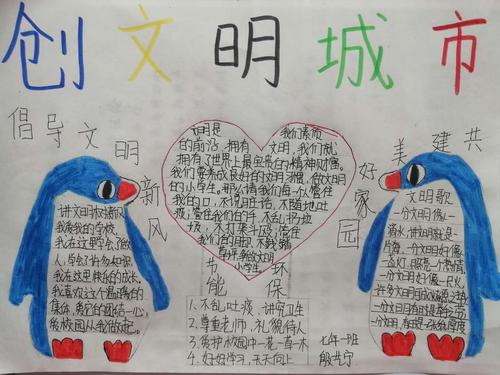 创文明城市
倡导文明新风
共建美好家园
文明是 我们素质
的前沿,拥有 文明,我们就
拥有了世界上最宝贵的精神财富。
我们要养成良好的文明习惯,做文明
的小学生。那么请我们每个管住
我的口,不说脏话、不随地吐
痰;管住我们的手,不乱扔垃
圾,不打架斗殴;管住
我们的脚,不践踏
草坪,新的文明
小学生。
讲文明树新风
我爱我的学校,
我在这里学会了做
人,学会了
我在这里快乐的成长。
我喜欢这个温暖的
集体,我们团结一心,
爱校园从我做起。
文明歌
一分文明像一
滴水,讲文明就是一
片海,一分文明好像
一盏灯,照亮一个
一分文明好像一尺
节能
环保
1、不乱吐痰,讲究卫生
2、尊重老师,礼貌待人
3、爱护校园中一花一草一木
4、好好学习,天天向上
七年一班